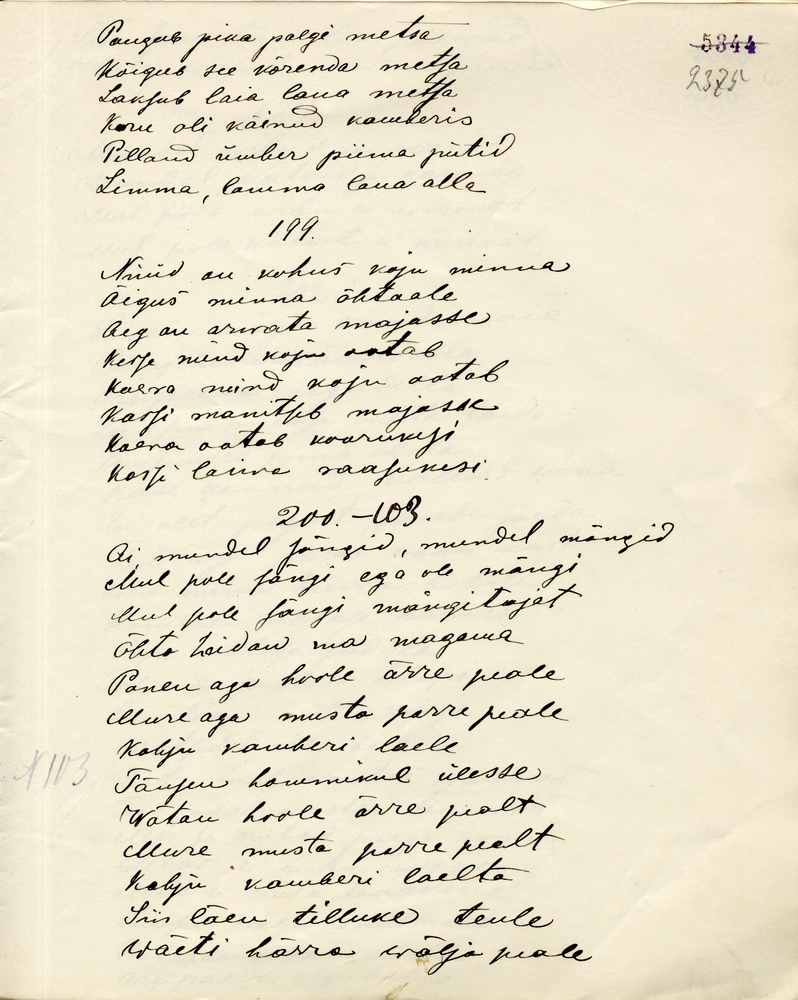 5344
2375
Paugub pika palgi metsa
Kõigub see kõrenda metsa
Laksub laia laua metsa
Karu oli käinud kamberis
Pilland ümber piima pütid
Limma, lamma laua alla
199.
Nüüd on kohus koju minna
Õigus minna õhtaale
Aeg on arwata majasse
Kesse mind koju ootab
Koera mind koju ootab
Kassi manitseb majasse
Koera ootab koorukesi
Kassi laiwa raasukesi
200. – 103.
Ai mundel sängid, mundel mängid
Mul pole sängi ega ole mängi
Mul pole sängi mängitajat
Õhto heidan ma magama
Panen aga hoole ärre peale
Mure aga musta parre peale
Kahju kamberi laele
Tõusen hommikul ülesse
Wõtan hoole ärre pealt
Mure musta parre pealt
Kahju kamberi laelta
N 103
Siis läen tilluke teule
Wäeti härra wälja peale